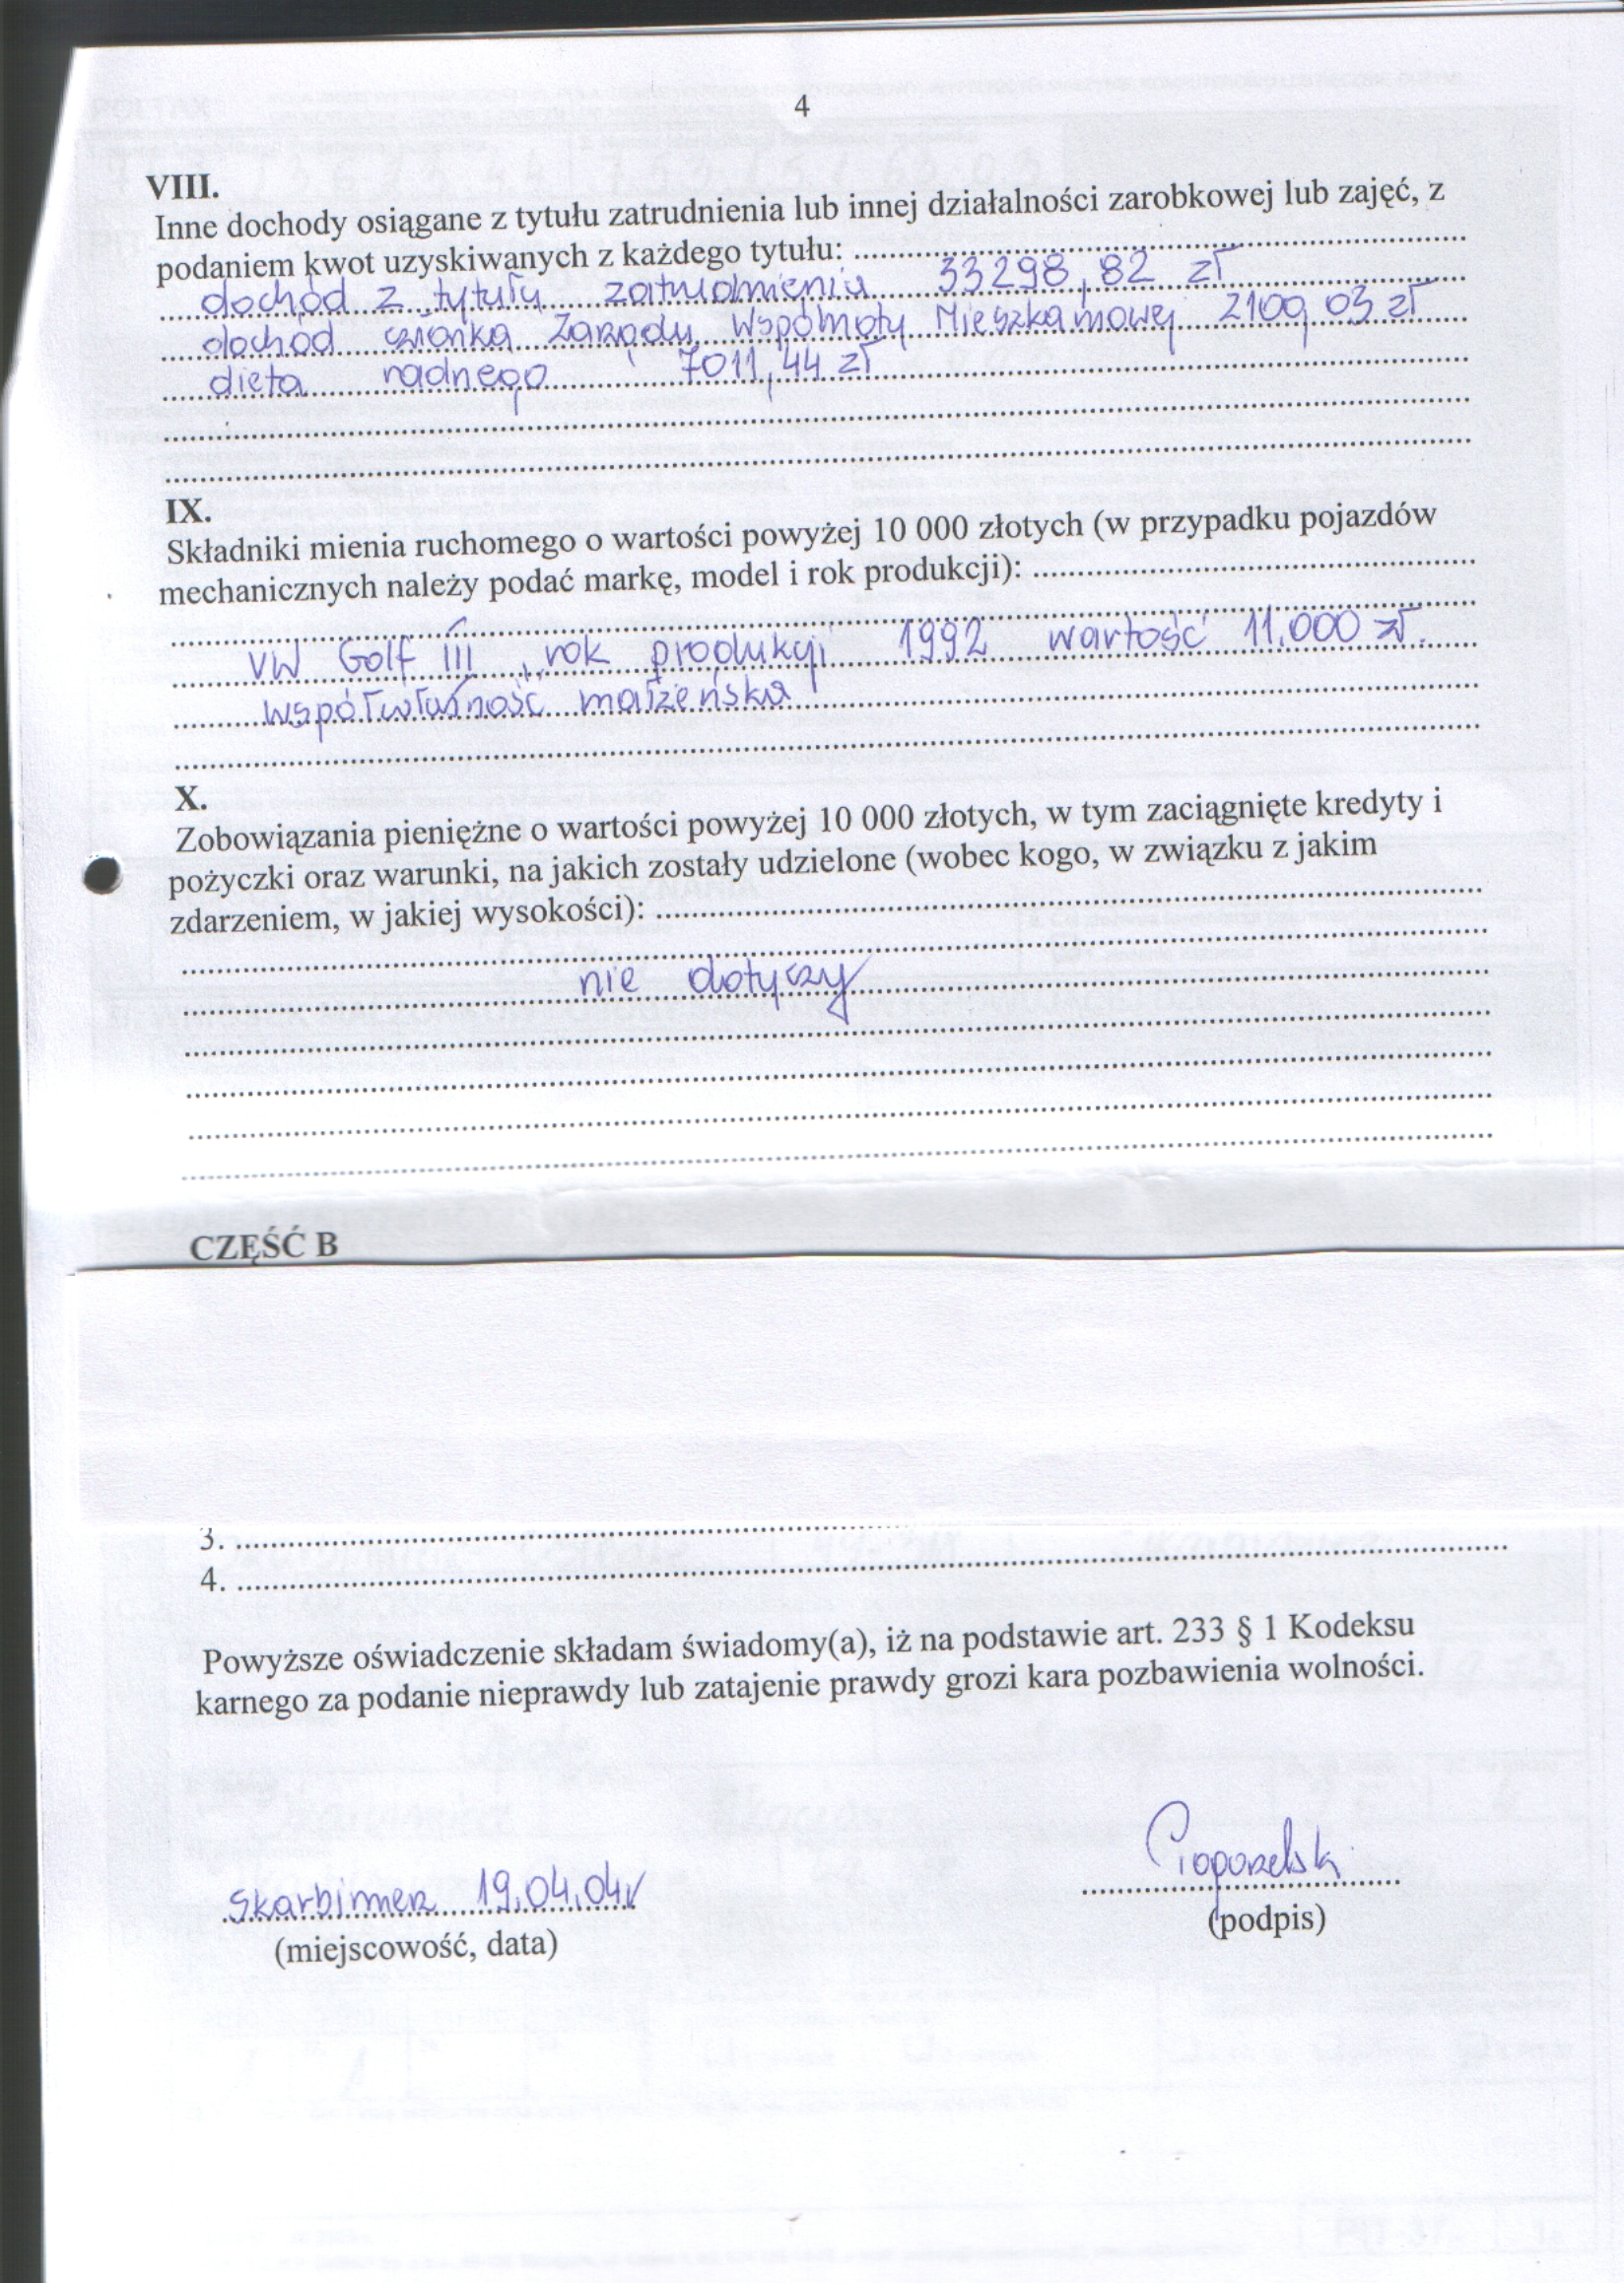 4
VIII.
Inne dochody osiągane z tytułu zatrudnienia lub innej działalności zarobkowej lub zajęć, z
podaniem kwot uzyskiwanych z każdego tytułu: ..........
dochód z tytułu zatrudnienia 33298,82 zł
dochód członka Zarządu Wspólnoty Mieszkaniowej 2109,03 zł
dieta radnego 7011,44 zł
IX.
Składniki mienia ruchomego o wartości powyżej 10 000 złotych (w przypadku pojazdów
mechanicznych należy podać markę, model i rok produkcji): ..........
VW Golf III, rok produkcji 1992 wartość 11.000 zł.
współwłasność małżeńska
X.
Zobowiązania pieniężne o wartości powyżej 10 000 złotych, w tym zaciągnięte kredyty i
pożyczki oraz warunki, na jakich zostały udzielone (wobec kogo, w związku z jakim
zdarzeniem, w jakiej wysokości): ..........
nie dotyczy
CZĘŚĆ B
3. ..........
4. ..........
Powyższe oświadczenie składam świadomy(a), iż na podstawie art. 233 § 1 Kodeksu
karnego za podanie nieprawdy lub zatajenie prawdy grozi kara pozbawienia wolności.
Skarbimierz 19.04.04r
(miejscowość, data)
(podpis)